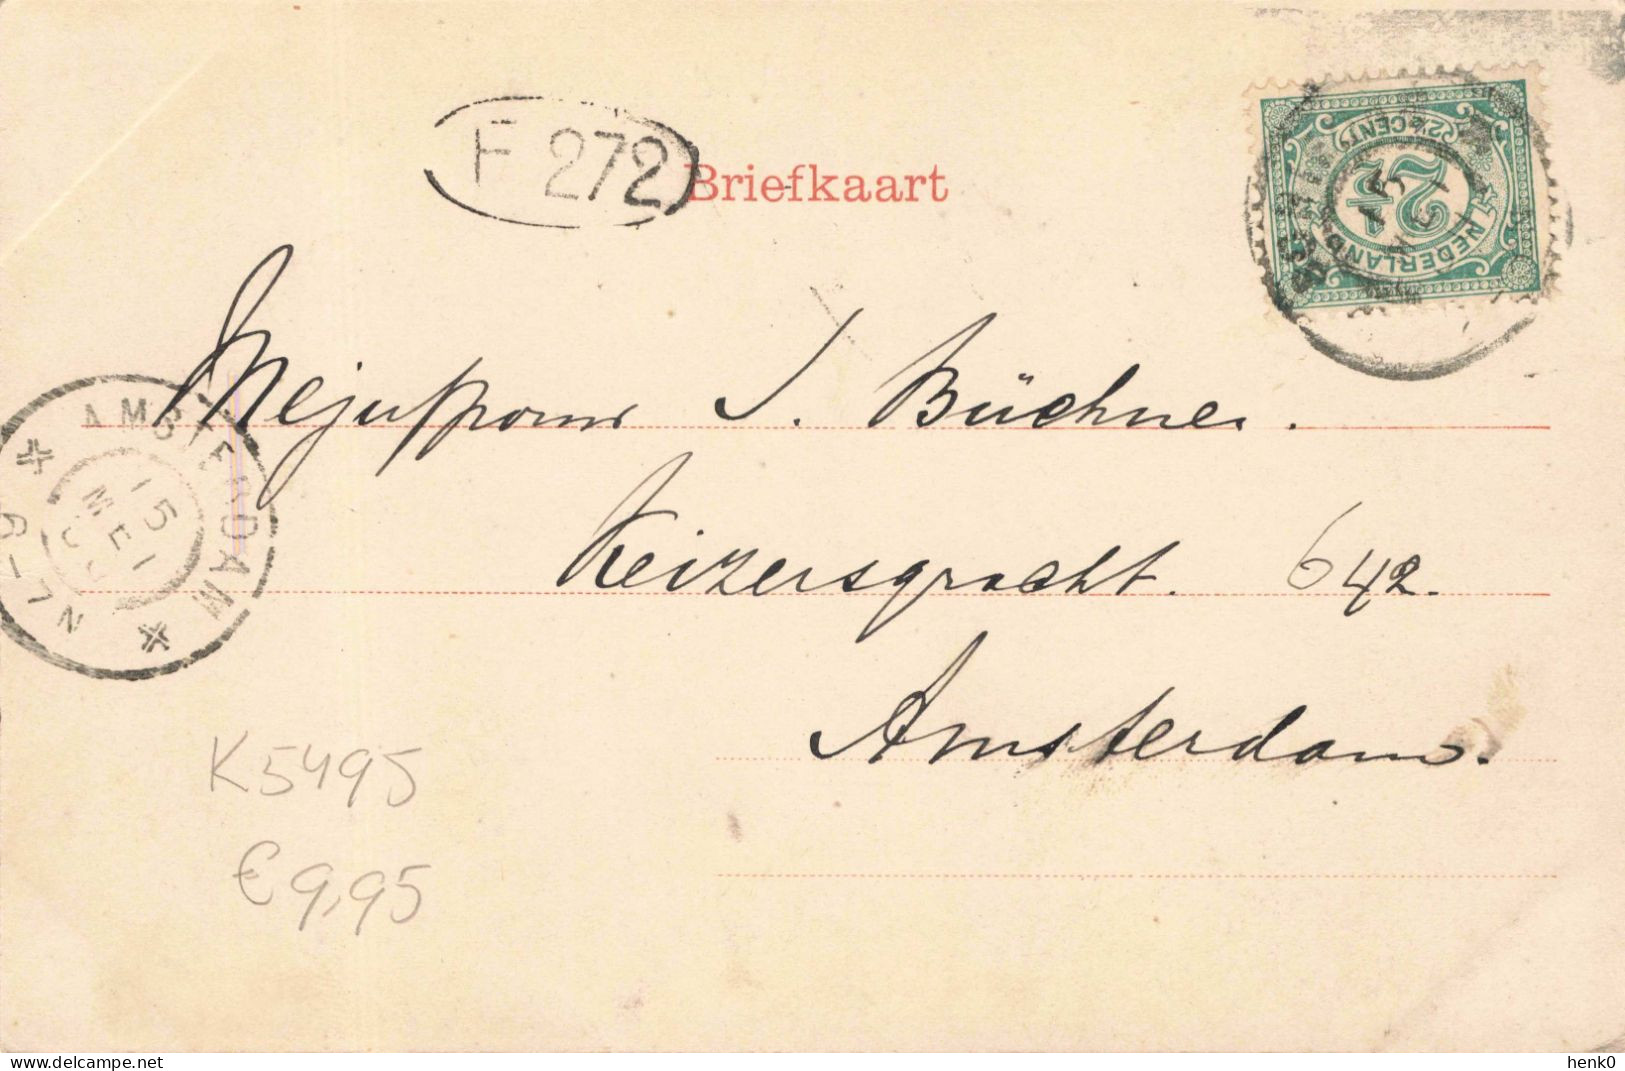 F 272
Briefkaart
2½ CENT
2½
NEDERLAND
15
MEI
Mejuffrouw J. Büchner.
AMSTERDAM
15
MEI
6-7 N
Keizersgracht. 642.
Amsterdam.
K5495
€ 9,95
www.delcampe.net
henk0